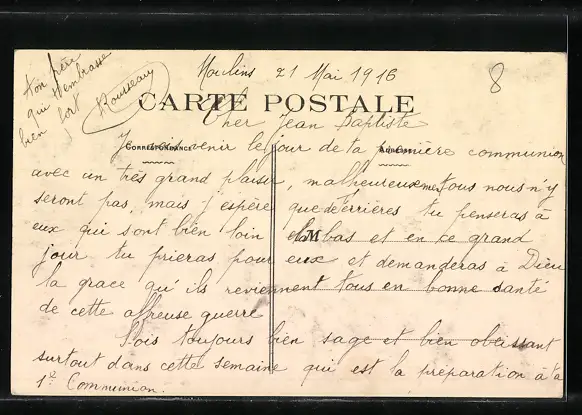 Moulins 21 Mai 1916
8
CARTE POSTALE
Cher Jean Baptiste
CORRESPONDANCE
ADRESSE
Je vois venir le jour de ta première communion
avec un très grand plaisir, malheureusement tous nous n'y
seront pas, mais j'espère que tu penseras à
eux qui sont bien loin là bas et en ce grand
M
jour tu prieras pour eux et demanderas à Dieu
la grace qu'ils reviennent tous en bonne santé
de cette affreuse guerre
Sois toujours bien sage et bien obeissant
surtout dans cette semaine qui est la préparation à ta
1re Communion.
ton père
qui t'embrasse
bien fort
Rousseau